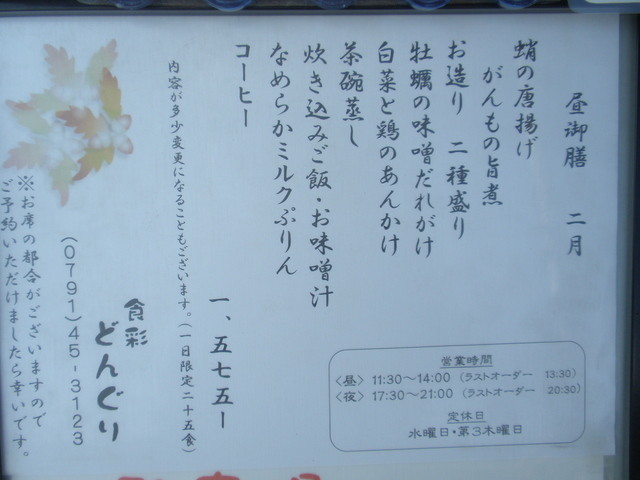 昼御膳　二月
蛸の唐揚げ
がんもの旨煮
お造り　二種盛り
牡蠣の味噌だれがけ
白菜と鶏のあんかけ
茶碗蒸し
炊き込みご飯・お味噌汁
なめらかミルクぷりん
コーヒー
一、五七五ー
内容が多少変更になることもございます。(一日限定二十五食)
食彩
どんぐり
(0791)45-3123
※お席の都合がございますので
ご予約いただけましたら幸いです。
営業時間
〈昼〉 11:30～14:00 (ラストオーダー 13:30)
〈夜〉 17:30～21:00 (ラストオーダー 20:30)
定休日
水曜日・第3木曜日